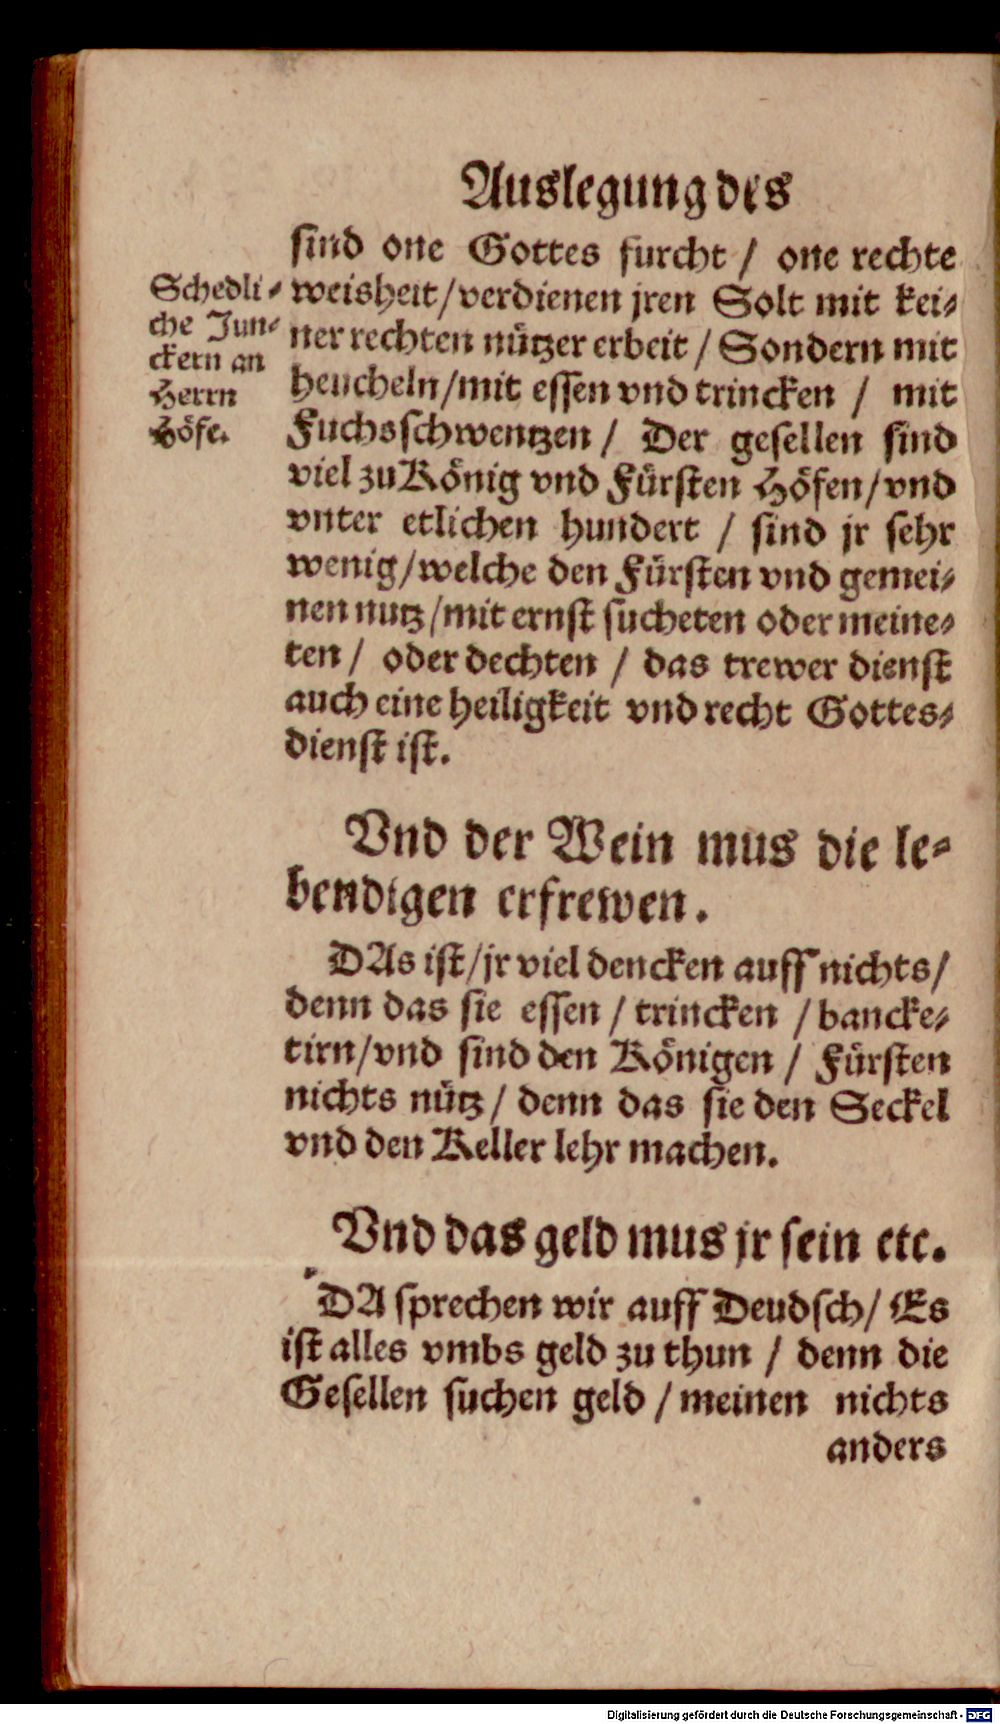 Auslegung des
sind one Gottes furcht / one rechte
weisheit/verdienen jren Solt mit kei⸗
ner rechten nützer erbeit / Sondern mit
heucheln/mit essen vnd trincken / mit
Fuchsschwentzen / Der gesellen sind
viel zu König vnd Fürsten Höfen/vnd
vnter etlichen hundert / sind jr sehr
wenig/welche den Fürsten vnd gemei⸗
nen nutz/mit ernst sucheten oder meine⸗
ten / oder dechten / das trewer dienst
auch eine heiligkeit vnd recht Gottes⸗
dienst ist.
Schedli⸗
che Jun⸗
ckern an
Herrn
Höfe.
Vnd der Wein mus die le⸗
bendigen erfrewen.
DAs ist/jr viel dencken auff nichts/
denn das sie essen / trincken / bancke⸗
tirn/vnd sind den Königen / Fürsten
nichts nütz / denn das sie den Seckel
vnd den Keller lehr machen.
Vnd das geld mus jr sein etc.
DA sprechen wir auff Deudsch/ Es
ist alles vmbs geld zu thun / denn die
Gesellen suchen geld / meinen nichts
anders
Digitalisierung gefördert durch die Deutsche Forschungsgemeinschaft - DFG